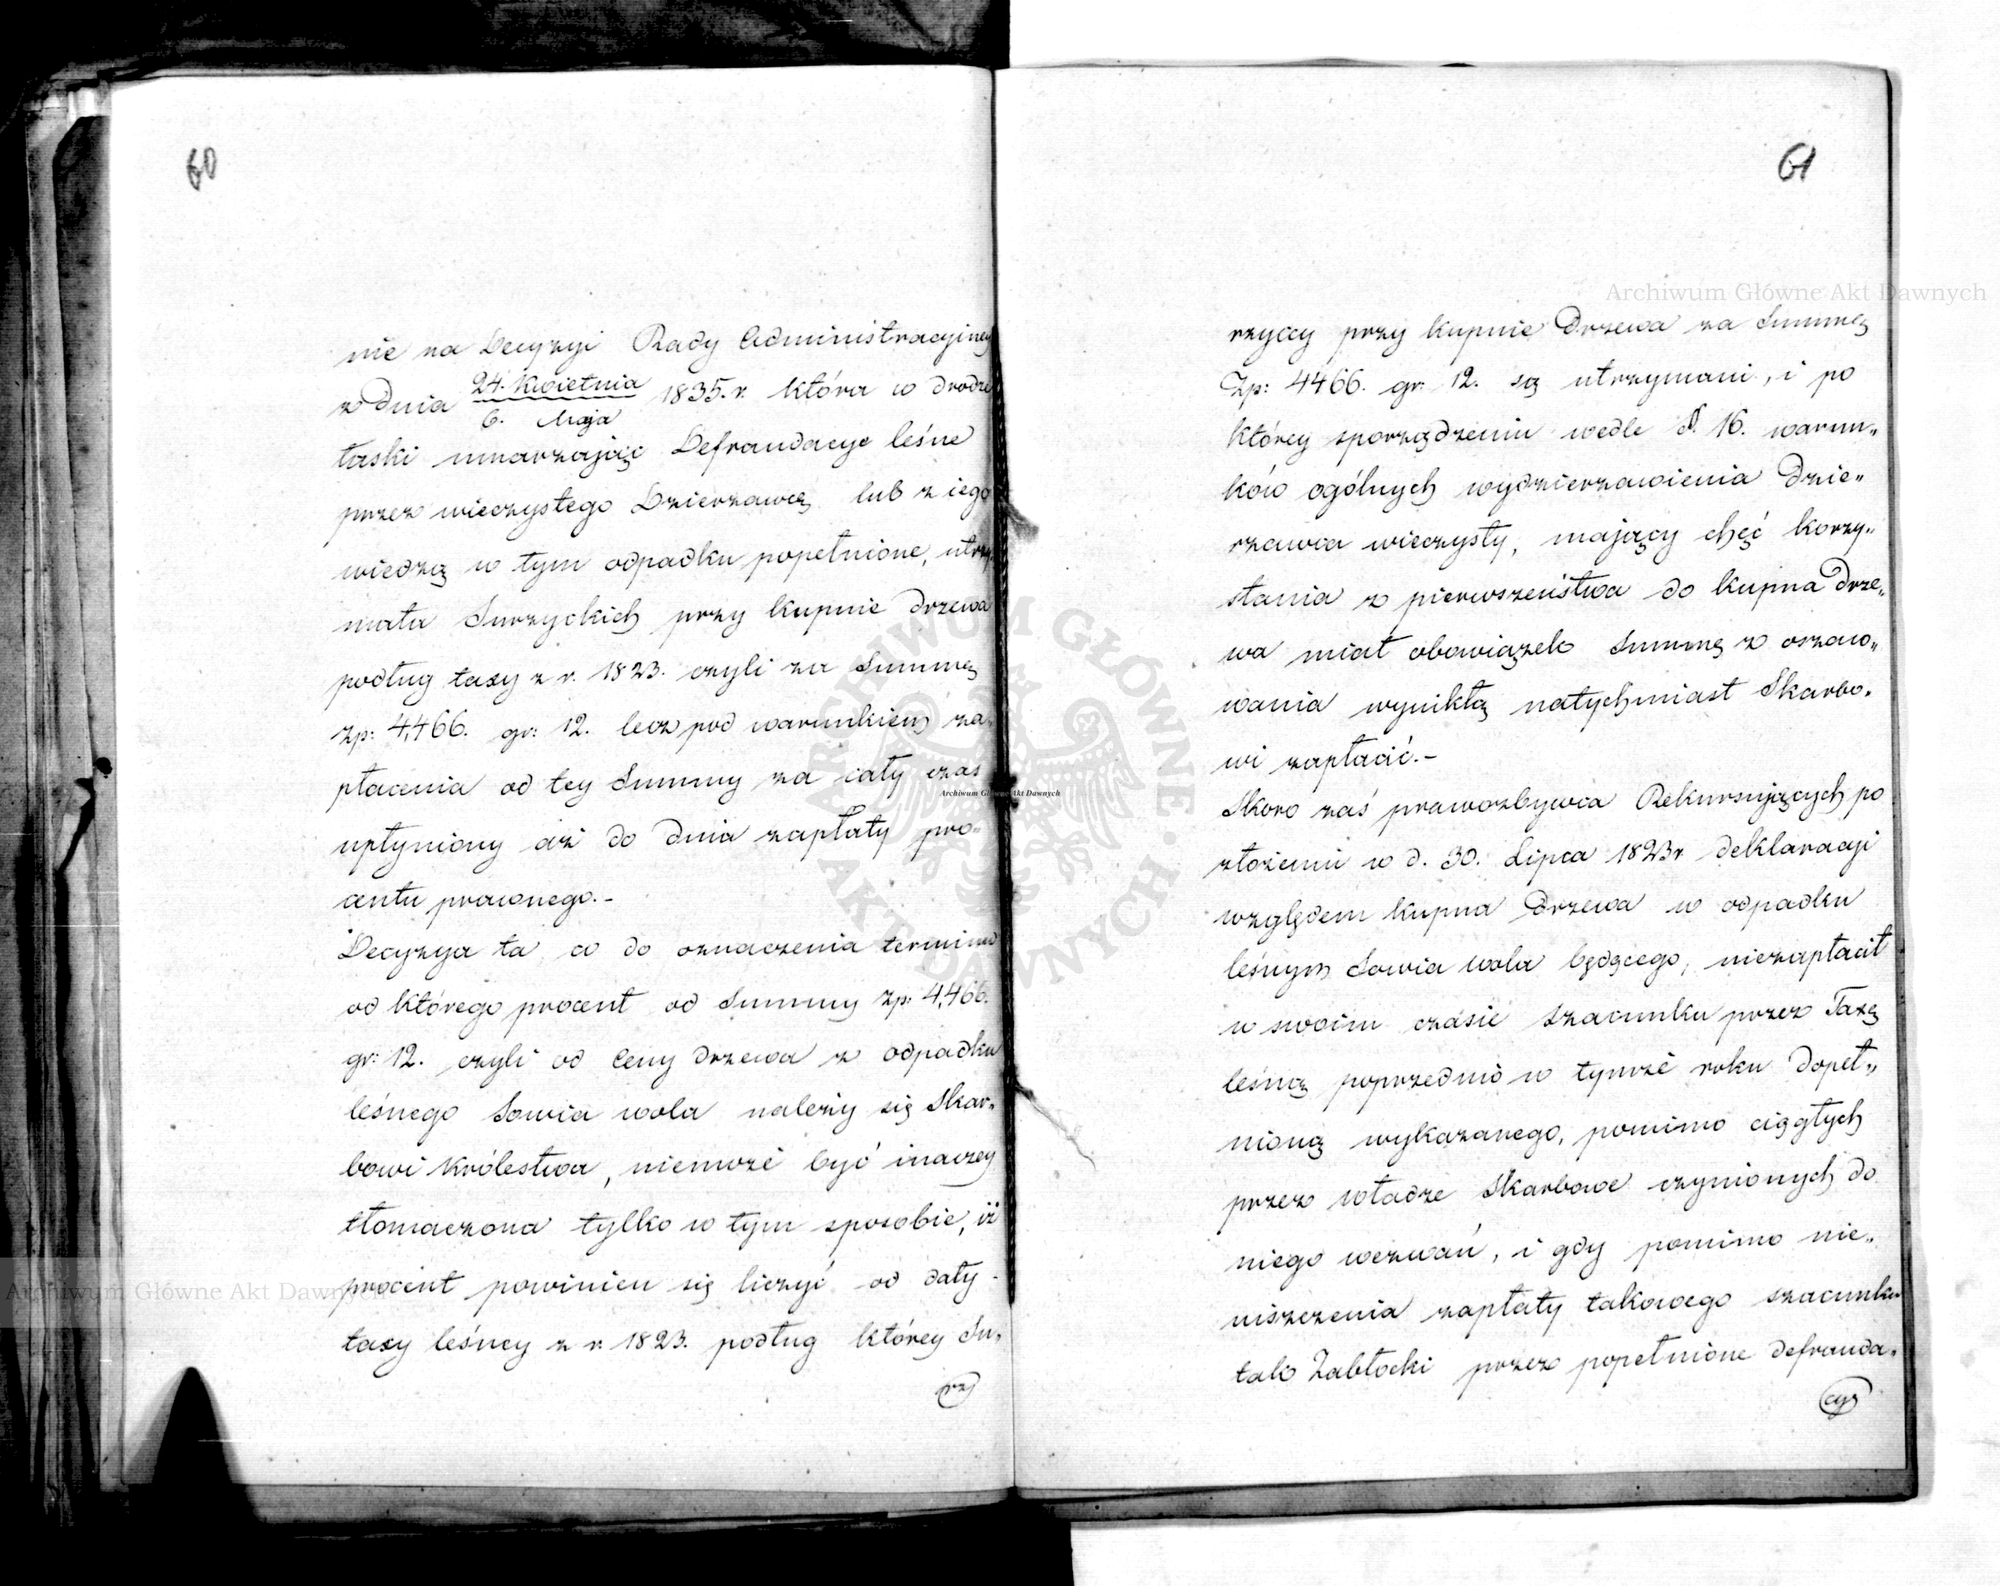 60
nie na Decyzyi Rady Administracyiney
z dnia 24. Kwietnia / 6. Maja 1835. r. która w drodze
łaski umarzając Defraudacye leśne
przez wieczystego Dzierzawcę lub z iego
wiedzą w tym odpadku popełnione, utrzy
mała Surzyckich przy kupnie drzewa
podług taxy z r. 1823. czyli za Summę
Zp: 4,466. gr: 12. lecz pod warunkiem za„
płacenia od tey Summy za cały czas
upłyniony aż do dnia zapłaty pro„
centu prawnego.–
Decyzya ta co do oznaczenia terminu
od którego procent od Summy Zp: 4,466.
gr: 12. czyli od Ceny drzewa z odpadku
leśnego Sowia wola należy się Skar„
bowi Królestwa, niemoże być inaczey
tłomaczona tylko w tym sposobie, iż
procent powinien się liczyć od daty
taxy leśney z r. 1823. podług którey Su„
rzy
61
rzyccy przy kupnie Drzewa za Summę
Zp: 4466. gr: 12. są utrzymani, i po
którey sporządzeniu wedle §. 16. warun„
ków ogólnych wydzierzawienia Dzie„
rzawca wieczysty, mający chęć korzy„
stania z pierwszeństwa do kupna Drze„
wa miał obowiązek Summę z oszaco„
wania wynikłą natychmiast Skarbo„
wi zapłacić.–
Skoro zaś prawozbywca Rekursujących po
złożeniu w d. 30. Lipca 1823 r. deklaracyi
względem kupna Drzewa w odpadku
leśnym Sowia wola będącego, niezapłacił
w swoim czasie szacunku przez Taxę
leśną poprzednio w tymże roku dopeł„
nioną wykazanego, pomimo ciągłych
przez władze Skarbowe czynionych do
niego wezwań, i gdy pomimo nie„
uiszczenia zapłaty takowego szacunku
tak Zabłocki przez popełnione defrauda„
cye
Archiwum Główne Akt Dawnych
Archiwum Główne Akt Dawnych
Archiwum Główne Akt Dawnych
ARCHIWUM GŁÓWNE · AKT DAWNYCH ·